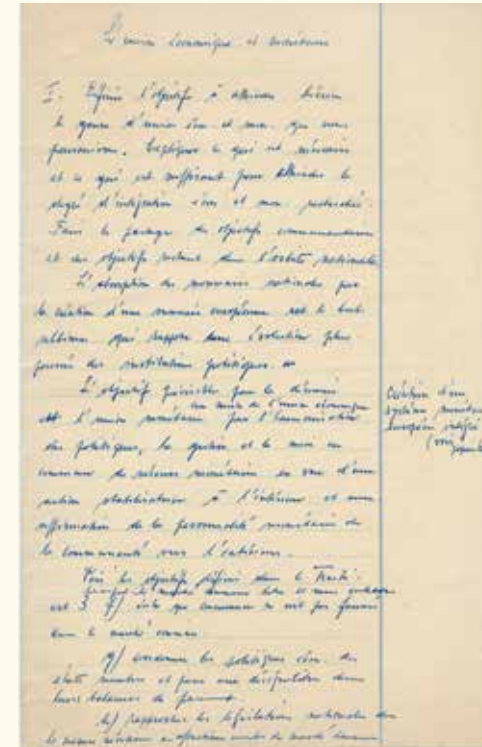 L'union économique et monétaire
I. Définir l'objectif à atteindre, décrire
le genre d'union écon. et mon. que nous
poursuivons. Expliquer ce qui est nécessaire
et ce qui est suffisant pour atteindre le
degré d'intégration écon. et mon. recherché.
Faire le partage des objectifs communautaires
et des objectifs restant dans l'orbite nationale
L'absorption des monnaies nationales par
la création d'une monnaie européenne est le but
ultime qui suppose une évolution plus
poussée des institutions politiques.
L'objectif pour la décennie
est l'union monétaire par l'harmonisation
en marge de l'union économique
des politiques, la gestion et la mise en
commun des réserves monétaires en vue d'une
action stabilisatrice à l'intérieur et une
affirmation de la personnalité monétaire de
la communauté vers l'extérieur.
Création d'un
système monétaire
européen intégré
Voir les objectifs définis dans le Traité.
art 3 f) éviter que concurrence ne soit pas faussée
dans le marché commun
g) coordonner les politiques écon. des
états membres et parer aux déséquilibres dans
leurs balances de paiement.
h) rapprocher les législations nationales dans
la mesure nécessaire au fonctionnement du marché commun